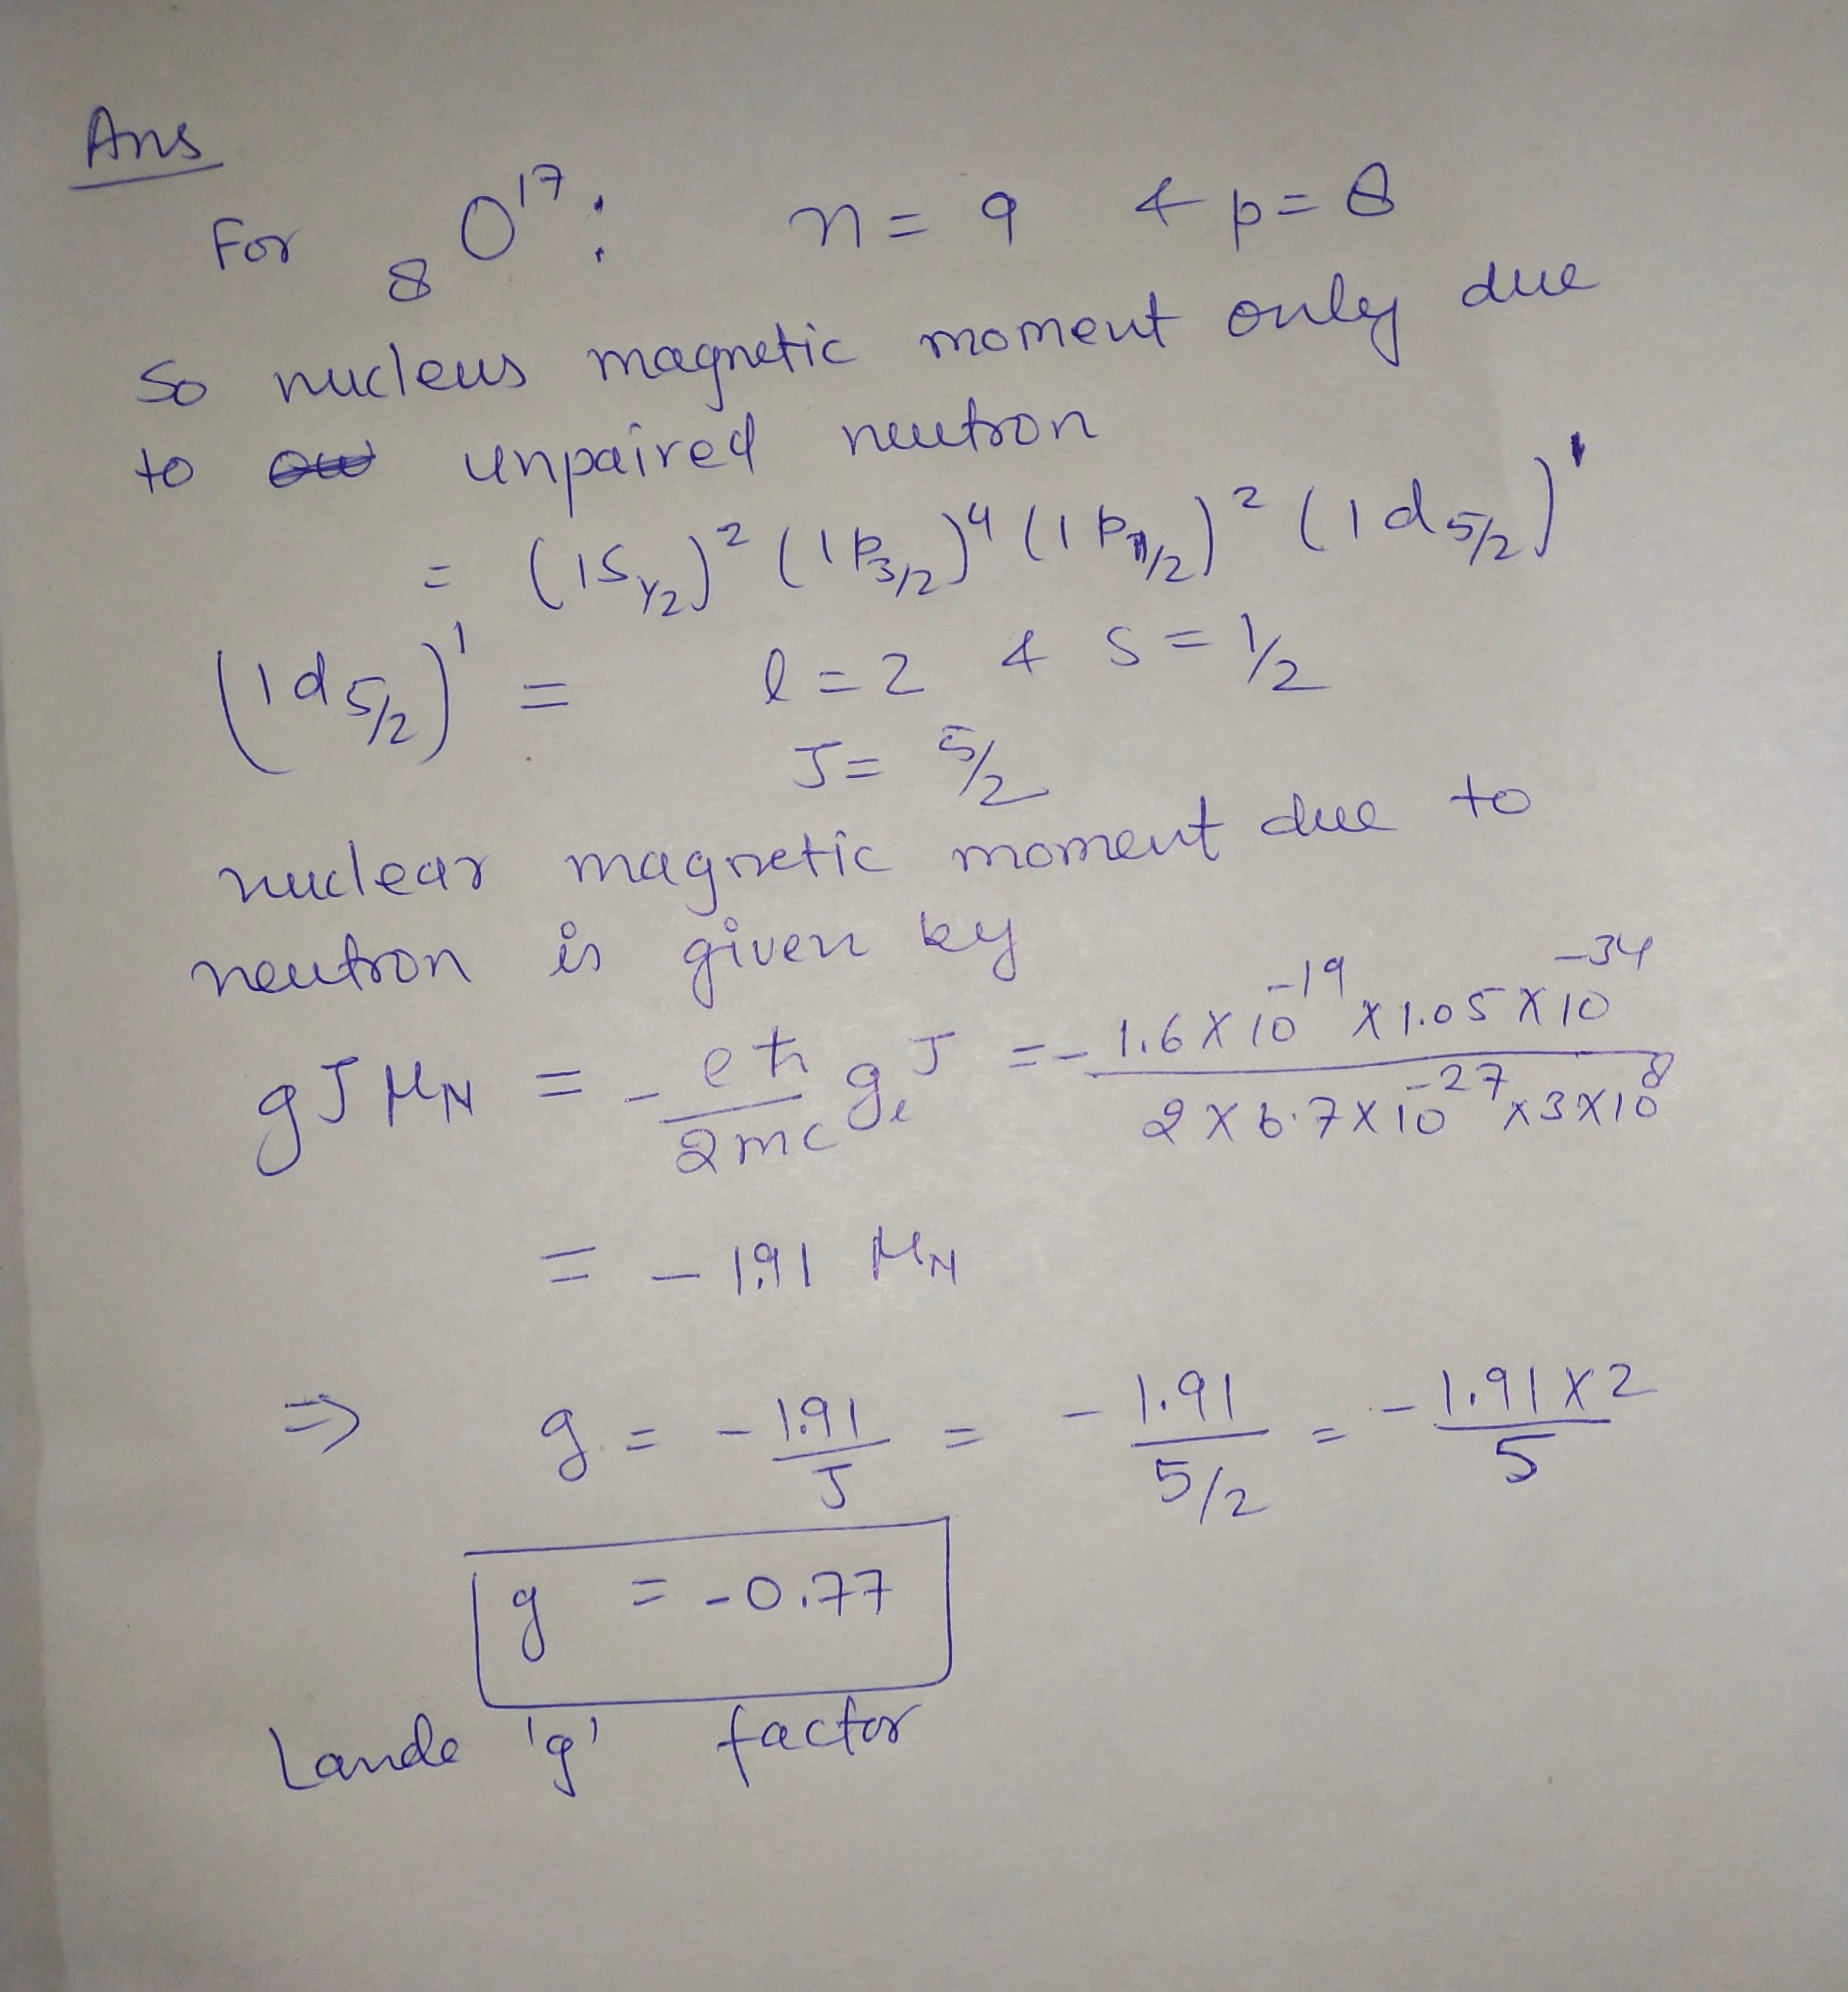 Ans
For ₈O¹⁷: n = 9 & p = 8
So nucleus magnetic moment only due
to unpaired neutron
= (1S₁/₂)² (1P₃/₂)⁴ (1P₁/₂)² (1d₅/₂)¹
(1d₅/₂)¹ = l = 2 & S = 1/2
J = 5/2
nuclear magnetic moment due to
neutron is given by
gJμ_N = - eħ/2mc gₑJ = - 1.6 × 10⁻¹⁹ × 1.05 × 10⁻³⁴ / 2 × 6.7 × 10⁻²⁷ × 3 × 10⁸
= - 1.91 μ_N
⇒ g = - 1.91/J = - 1.91/5/2 = - 1.91 × 2/5
g = -0.77
Lande 'g' factor